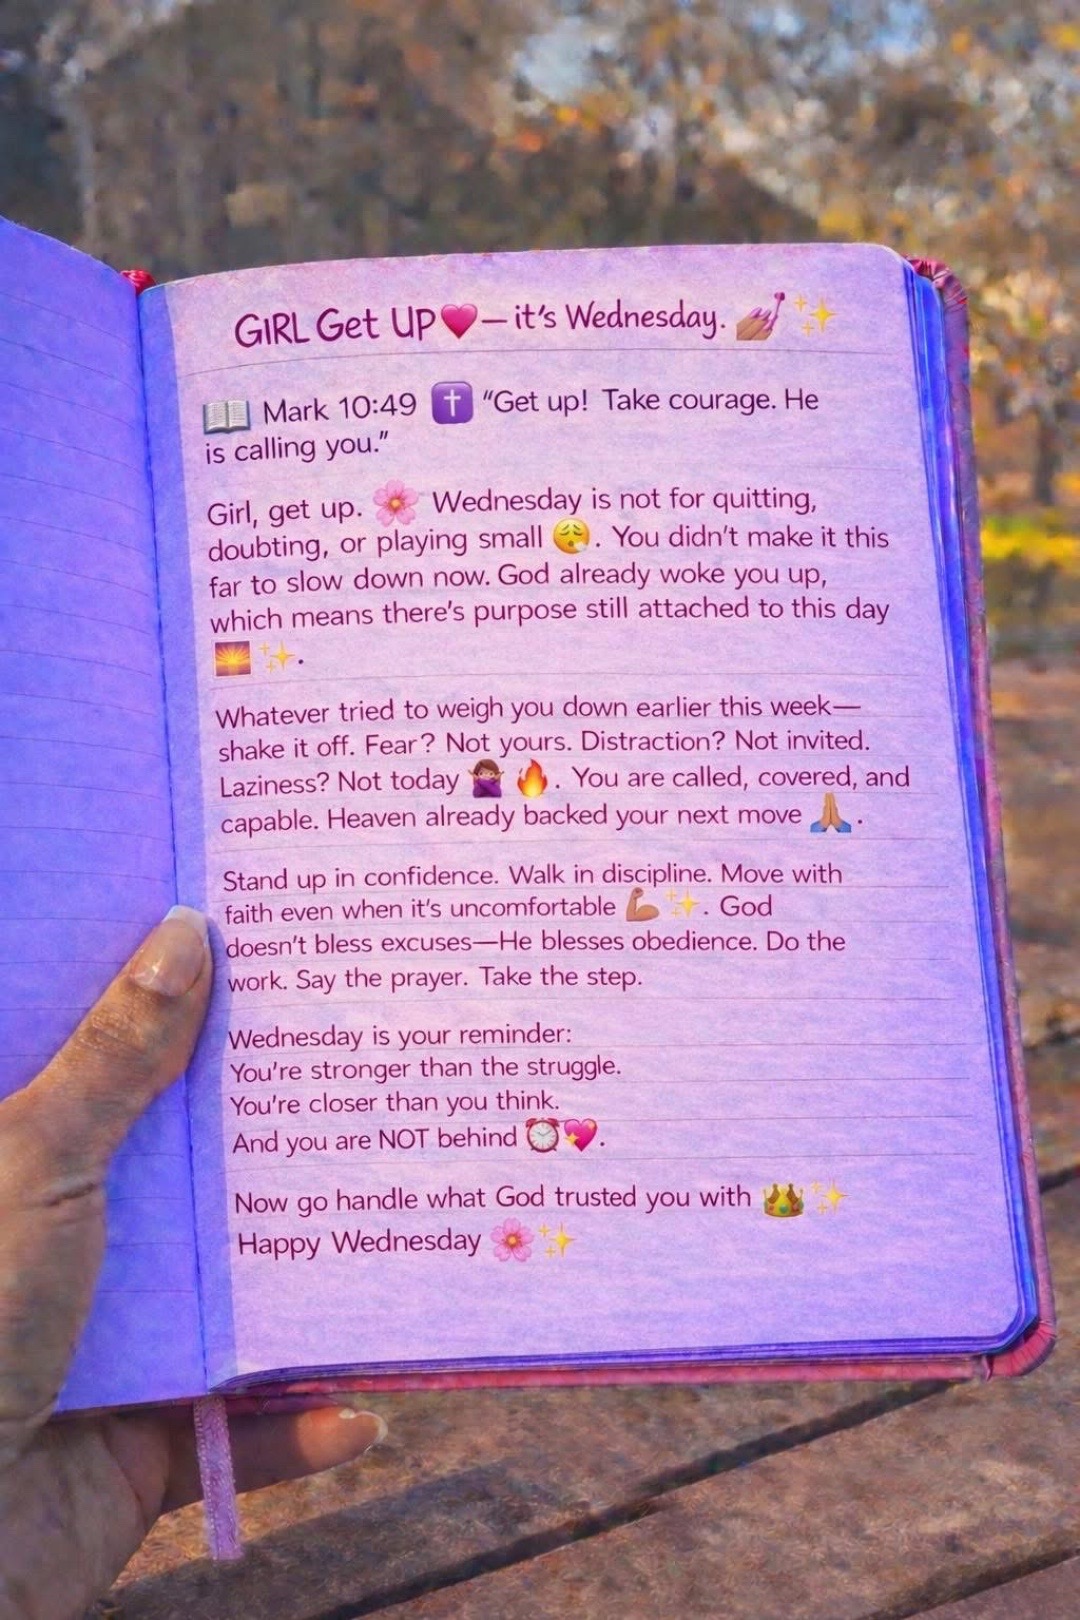 GIRL Get UP💗— it's Wednesday. 💅🏽✨
📖 Mark 10:49 ✝️ "Get up! Take courage. He
is calling you."
Girl, get up. 🌸 Wednesday is not for quitting,
doubting, or playing small 😮‍💨. You didn't make it this
far to slow down now. God already woke you up,
which means there's purpose still attached to this day
🌅✨.
Whatever tried to weigh you down earlier this week—
shake it off. Fear? Not yours. Distraction? Not invited.
Laziness? Not today 🙅🏽‍♀️🔥. You are called, covered, and
capable. Heaven already backed your next move 🙏🏽.
Stand up in confidence. Walk in discipline. Move with
faith even when it's uncomfortable 💪🏽✨. God
doesn't bless excuses—He blesses obedience. Do the
work. Say the prayer. Take the step.
Wednesday is your reminder:
You're stronger than the struggle.
You're closer than you think.
And you are NOT behind ⏰💖.
Now go handle what God trusted you with 👑✨
Happy Wednesday 🌸✨